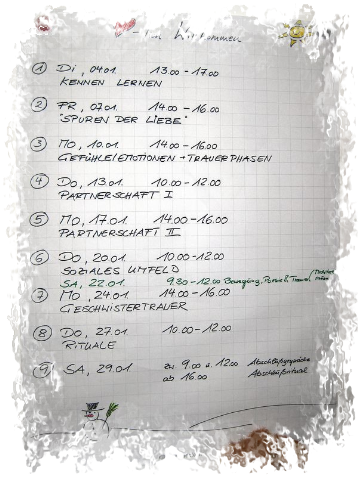 Willkommen
① Di, 04.01. 13.00 - 17.00
KENNEN LERNEN
② FR, 07.01. 14.00 - 16.00
"SPUREN DER LIEBE"
③ MO, 10.01. 14.00 - 16.00
GEFÜHLE/EMOTIONEN + TRAUERPHASEN
④ DO, 13.01. 10.00 - 12.00
PARTNERSCHAFT I
⑤ MO, 17.01. 14.00 - 16.00
PARTNERSCHAFT II
⑥ DO, 20.01. 10.00 - 12.00
SOZIALES UMFELD
SA, 22.01. 9.30 - 12.00 Bewegung,
⑦ MO, 24.01. 14.00 - 16.00
GESCHWISTERTRAUER
⑧ DO, 27.01. 10.00 - 12.00
RITUALE
⑨ SA, 29.01. 9.00 u. 12.00 Abschlußgespräche
ab 16.00 Abschlußritual